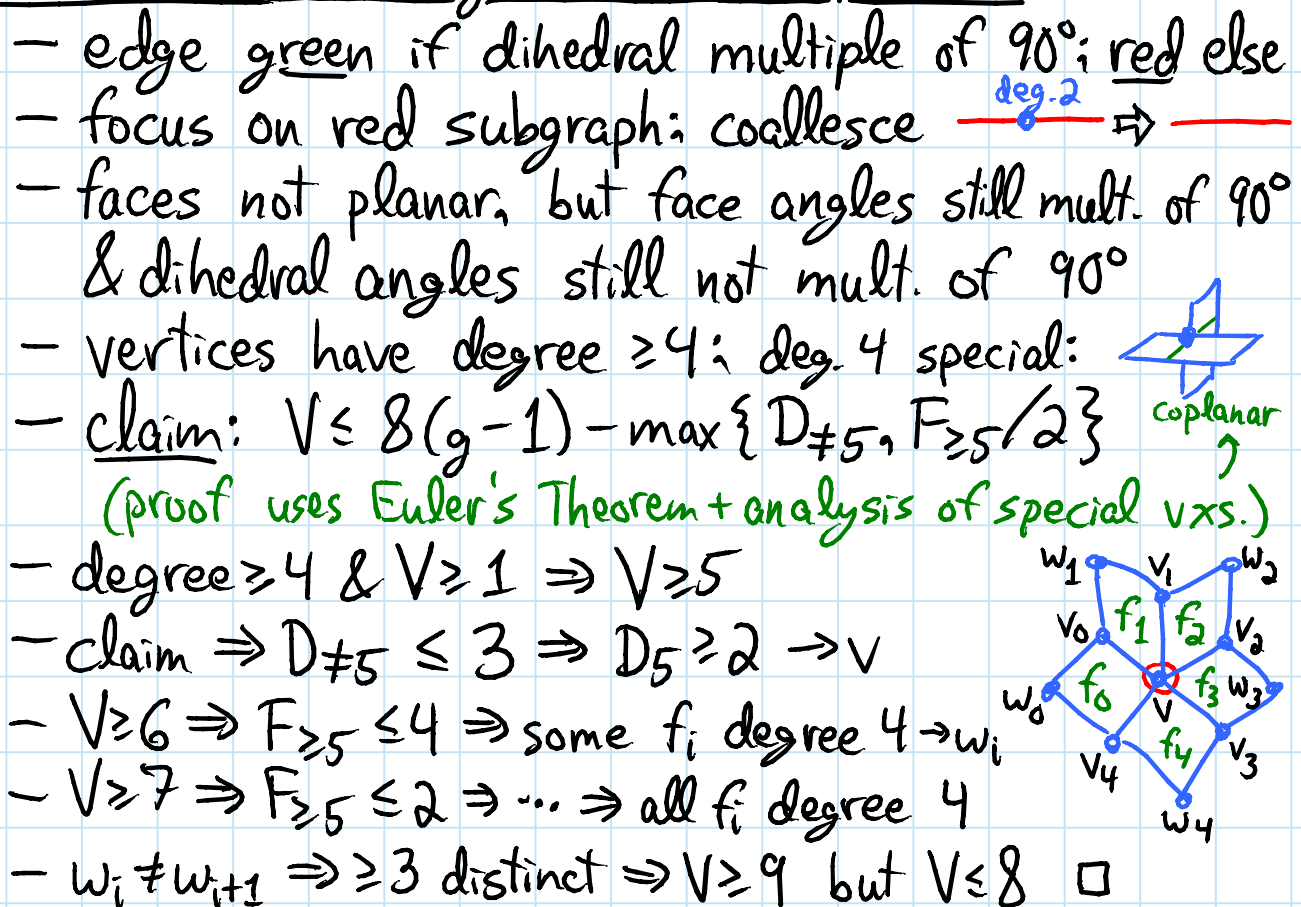 — edge green if dihedral multiple of 90°; red else
deg. 2
— focus on red subgraph; coallesce ⇒
— faces not planar, but face angles still mult. of 90°
& dihedral angles still not mult. of 90°
— vertices have degree ≥4; deg. 4 special:
— claim: V ≤ 8(g-1) - max{D≠5, F≥5/2}
coplanar
(proof uses Euler's Theorem + analysis of special vxs.)
— degree ≥ 4 & V ≥ 1 ⇒ V ≥ 5
— claim ⇒ D≠5 ≤ 3 ⇒ D5 ≥ 2 → v
— V ≥ 6 ⇒ F≥5 ≤ 4 ⇒ some fi degree 4 → wi
— V ≥ 7 ⇒ F≥5 ≤ 2 ⇒ ... ⇒ all fi degree 4
— wi ≠ wi+1 ⇒ ≥ 3 distinct ⇒ V ≥ 9 but V ≤ 8 □
w1 v1 w2
f1 f2
v0 v2
f0 f3 w3
w0 v
f4 v3
v4
w4